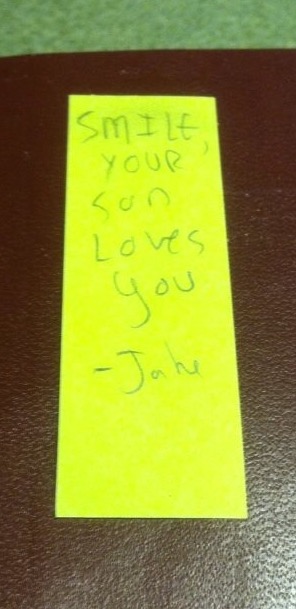 SMILE,
YOUR
son
Loves
you
-Jake